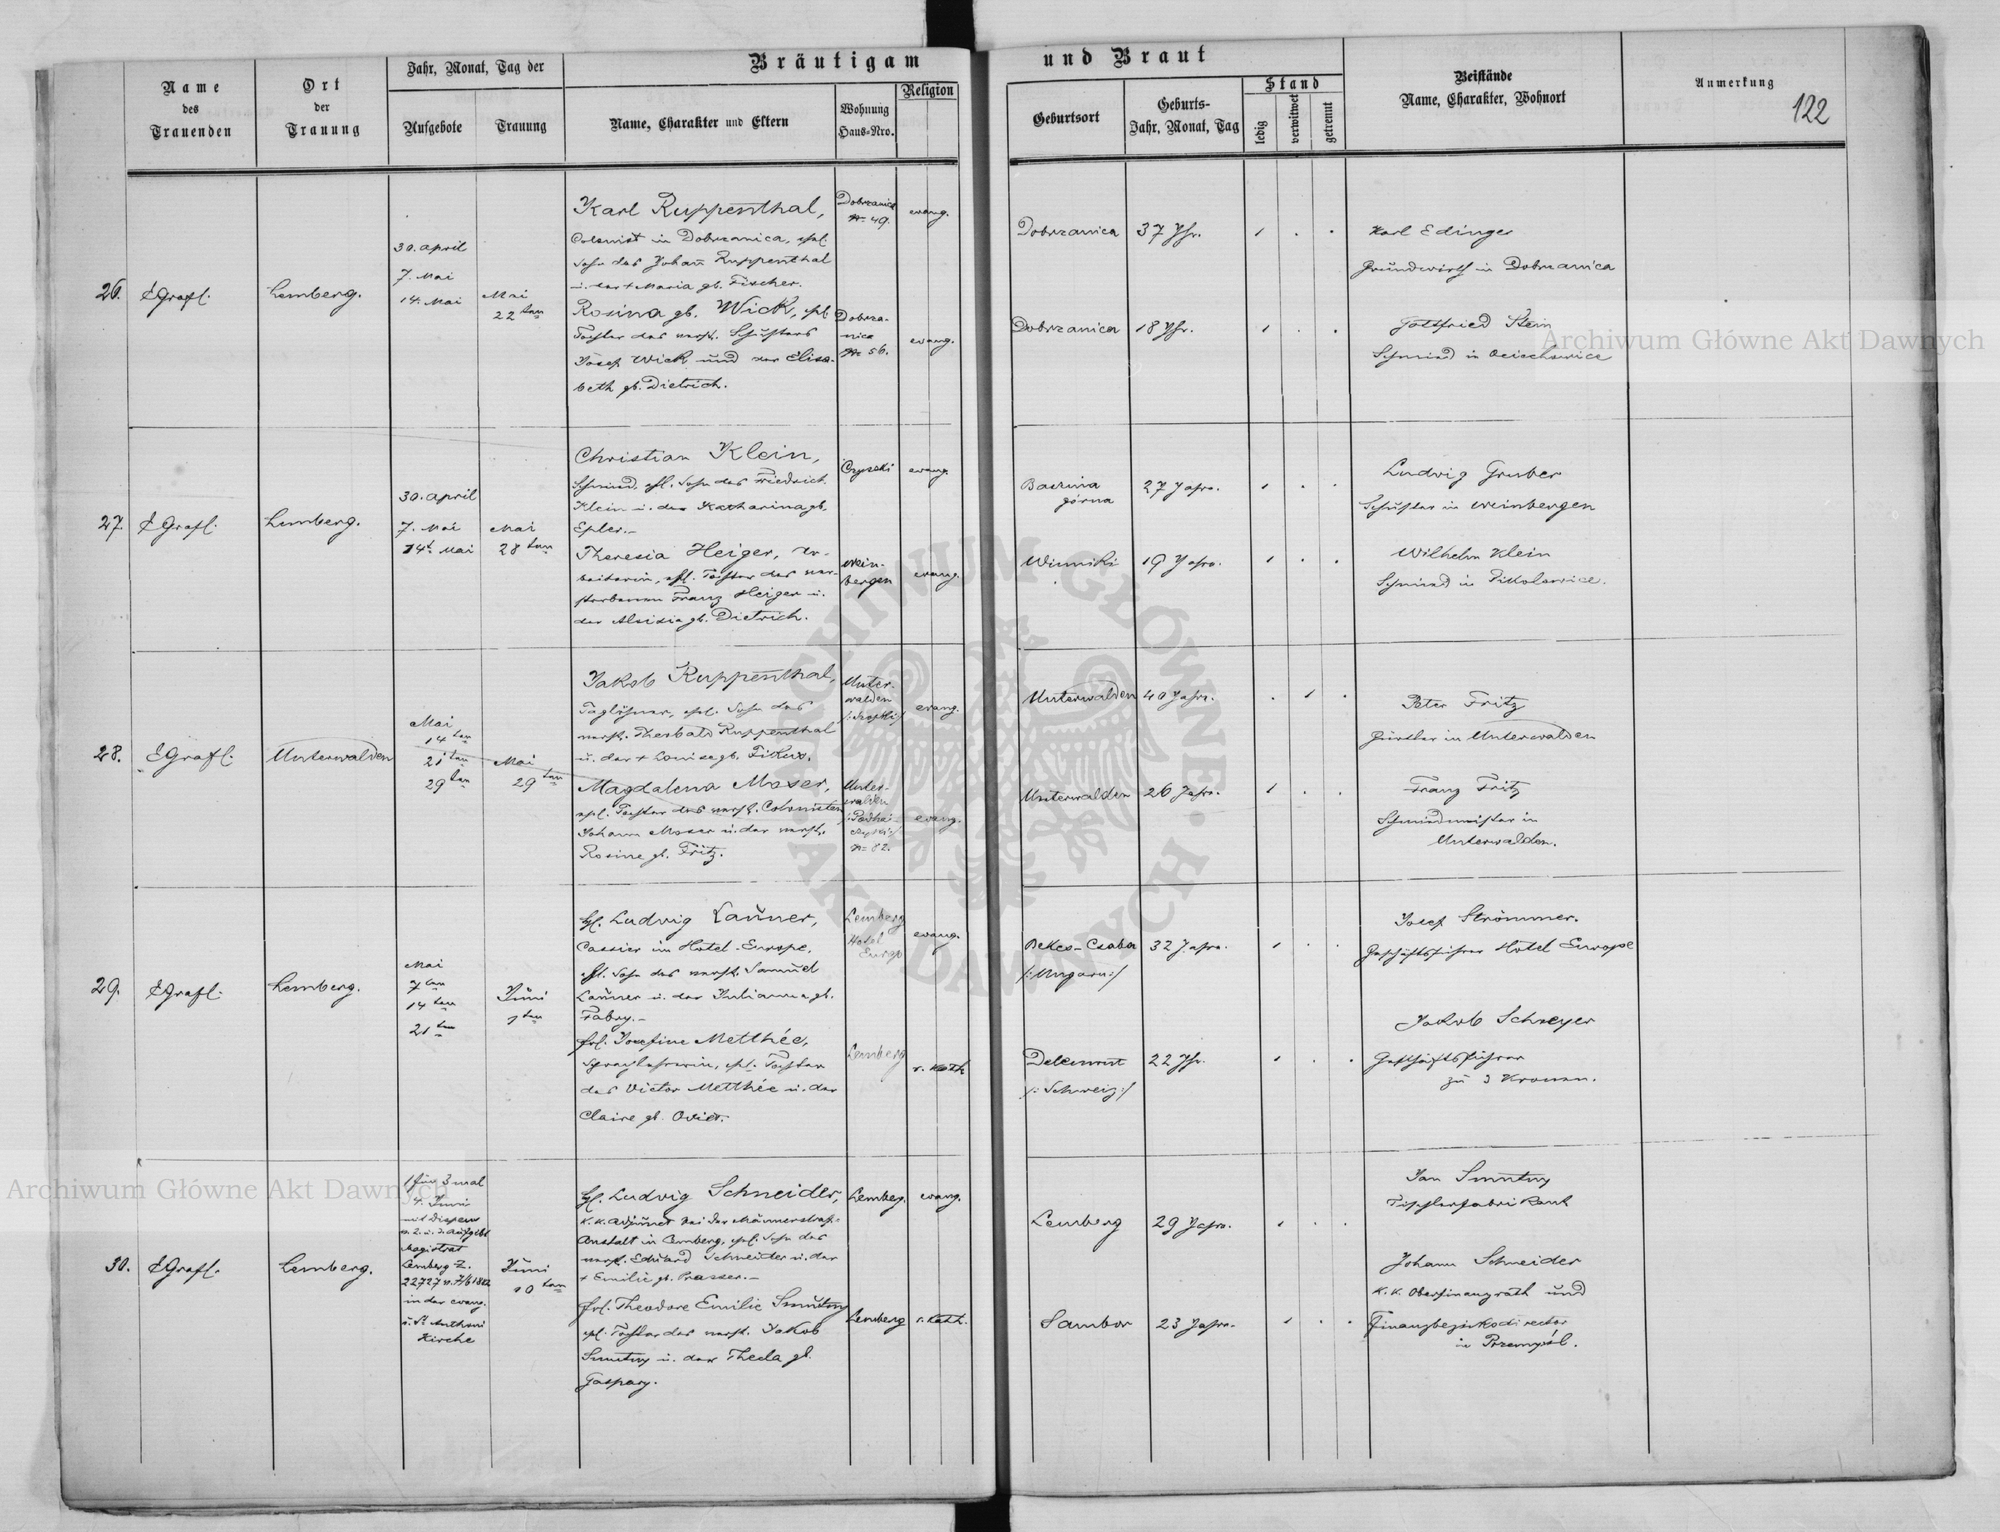 Bräutigam und Braut
Name des Trauenden
Ort der Trauung
Jahr, Monat, Tag der
Aufgebote
Trauung
Name, Charakter und Eltern
Wohnung Haus-Nro.
Religion
Geburtsort
Geburts- Jahr, Monat, Tag
Stand
ledig
verwitwet
getrennt
Beistände
Name, Charakter, Wohnort
Anmerkung
122
26.
EGrafl.
Lemberg.
30. April
7. Mai
14. Mai
Mai
22 ten
Karl Ruppenthal,
Colonist in Dobrzanica, ehl.
Sohn des Johann Ruppenthal
u. der + Maria gb. Fischer.
Rosina gb. Wick, ehl.
Tochter des verst. Schusters
Josef Wick und der Elisa-
beth gb. Dietrich.
Dobrzanica
No 49.
Dobrza-
nica
No 56.
evang.
evang.
Dobrzanica
37 Jhr.
Dobrzanica
18 Jhr.
Karl Edinger
Grundwirth in Dobrzanica
Gottfried Stein
Schmied in
27.
EGrafl.
Lemberg.
30. April
7. Mai
14t. Mai
Mai
28 ten
Christian Klein,
Schmied, ehl. Sohn des Friedrich
Klein u. der Katharina gb.
Epler.-
Theresia Heiger, Ar-
beiterin, ehl. Tochter des ver-
storbenen Franz Heiger u.
der Aloisia gb. Dietrich.
Czyszki
Wein-
bergen
evang.
evang.
górna
27 Jahre.
Winniki
19 Jahre.
Ludwig Gruber
Schuster in Weinbergen
Wilhelm Klein
Schmied in
28.
EGrafl.
Unterwalden
Mai
14 ten
21 ten
29 ten
Mai
29 ten
Jakob Ruppenthal,
Taglöhner, ehl. Sohn des
verst. Theobald Ruppenthal
u. der + Louise gb.
Magdalena Moser,
ehl. Tochter des verst. Colonisten
Johann Moser u. der verst.
Rosine gb. Fritz.
Unter-
walden
Unter-
walden
No 82.
evang.
evang.
Unterwalden
40 Jahre.
Unterwalden
26 Jahre.
Peter Fritz
in Unterwalden
Franz Fritz
Schmiedmeister in
Unterwalden.
29.
EGrafl.
Lemberg.
Mai
7 ten
14 ten
21 ten
Juni
1 ten
H. Ludwig Launer,
Cassier im Hotel-Europe,
ehl. Sohn des verst. Samuel
Launer u. der Julianna gb.
Fabry.-
Frl. Josefine Metthée,
Sprachlehrerin, ehl. Tochter
des Victor Metthée u. der
Claire gb.
Lemberg
Hotel
Europe
Lemberg
evang.
r. kath.
Bekes-Csaba
/:Ungarn:/
32 Jahre.
Delemont
/:Schweiz:/
22 Jhr.
Josef Strommer.
Geschäftsführer Hotel Europe
Jakob Schreyer
Geschäftsführer
zu 3 Kronen.
30.
EGrafl.
Lemberg.
1 für 3 mal
4. Juni
mit Dispens
v. 2. u. 3. Aufgebt
Magistrat
Lemberg Z.
in der evang.
u. St Anthoni
Kirche
Juni
10 ten
H. Ludwig Schneider,
k. k. Adjunct bei der Männerstraf-
Anstalt in Lemberg, ehl. Sohn des
verst. Eduard Schneider u. der
+ Emilie gb. Prasser.-
Frl. Theodore Emilie Smutny
ehl. Tochter des verst. Jakob
Smutny u. der Thecla gb.
Gaspary.
Lemberg.
Lemberg
evang.
r. kath.
Lemberg
29 Jahre.
Sambor
23 Jahre.
Jan Smutny
Tischlerfabrikant
Johann Schneider
k. k. Oberfinanzrath und
Finanzbezirksdirector
in Przemyśl.
Archiwum Główne Akt Dawnych
Archiwum Główne Akt Dawnych
ARCHIWUM GŁÓWNE · AKT DAWNYCH ·